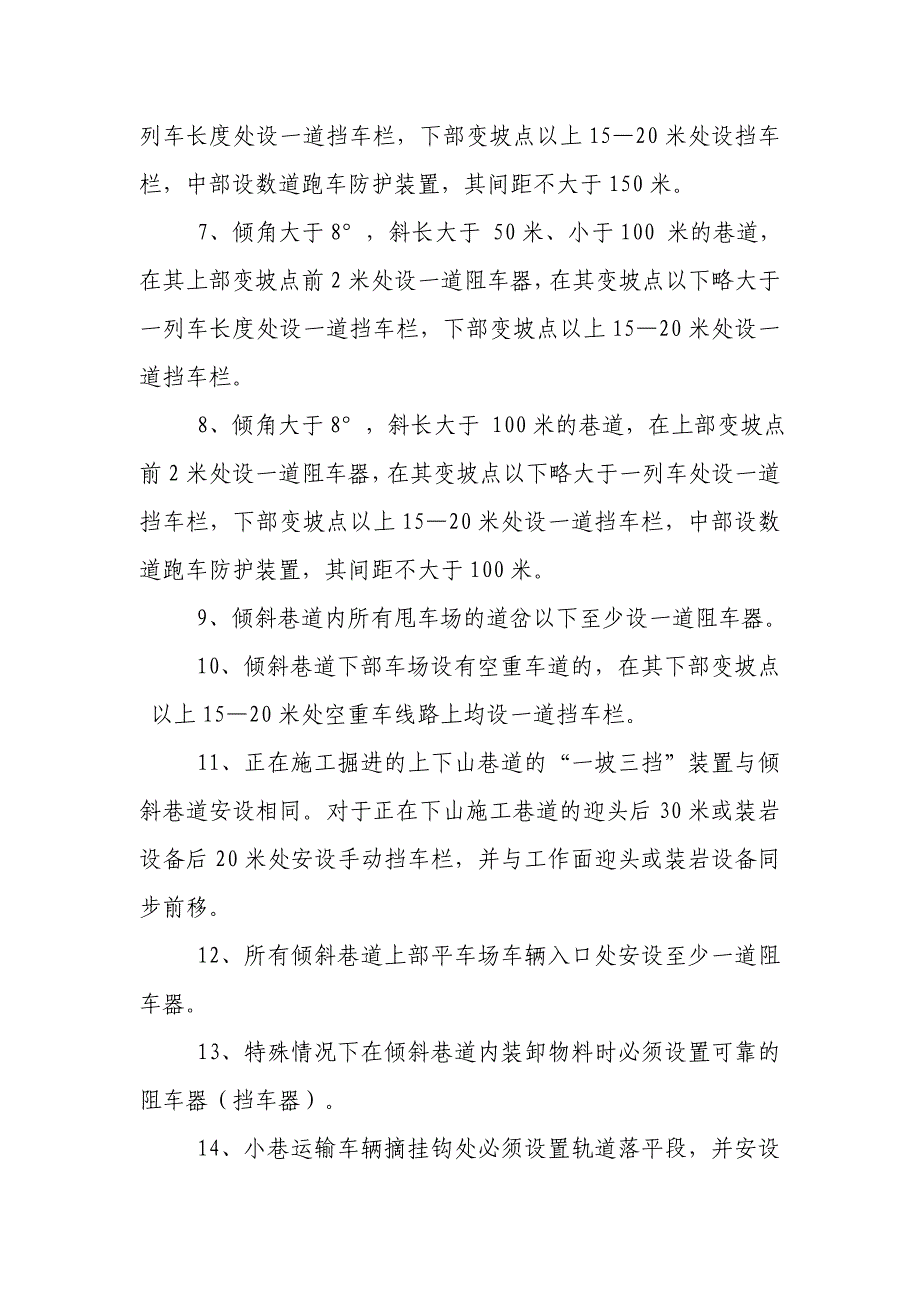 列车长度处设一道挡车栏，下部变坡点以上 15—20 米处设挡车
栏，中部设数道跑车防护装置，其间距不大于 150 米。
7、倾角大于 8°，斜长大于 50 米、小于 100 米的巷道，
在其上部变坡点前 2 米处设一道阻车器，在其变坡点以下略大于
一列车长度处设一道挡车栏，下部变坡点以上 15—20 米处设一
道挡车栏。
8、倾角大于 8°，斜长大于 100 米的巷道，在上部变坡点
前 2 米处设一道阻车器，在其变坡点以下略大于一列车处设一道
挡车栏，下部变坡点以上 15—20 米处设一道挡车栏，中部设数
道跑车防护装置，其间距不大于 100 米。
9、倾斜巷道内所有甩车场的道岔以下至少设一道阻车器。
10、倾斜巷道下部车场设有空重车道的，在其下部变坡点
以上 15—20 米处空重车线路上均设一道挡车栏。
11、正在施工掘进的上下山巷道的“一坡三挡”装置与倾
斜巷道安设相同。对于正在下山施工巷道的迎头后 30 米或装岩
设备后 20 米处安设手动挡车栏，并与工作面迎头或装岩设备同
步前移。
12、所有倾斜巷道上部平车场车辆入口处安设至少一道阻
车器。
13、特殊情况下在倾斜巷道内装卸物料时必须设置可靠的
阻车器（挡车器）。
14、小巷运输车辆摘挂钩处必须设置轨道落平段，并安设